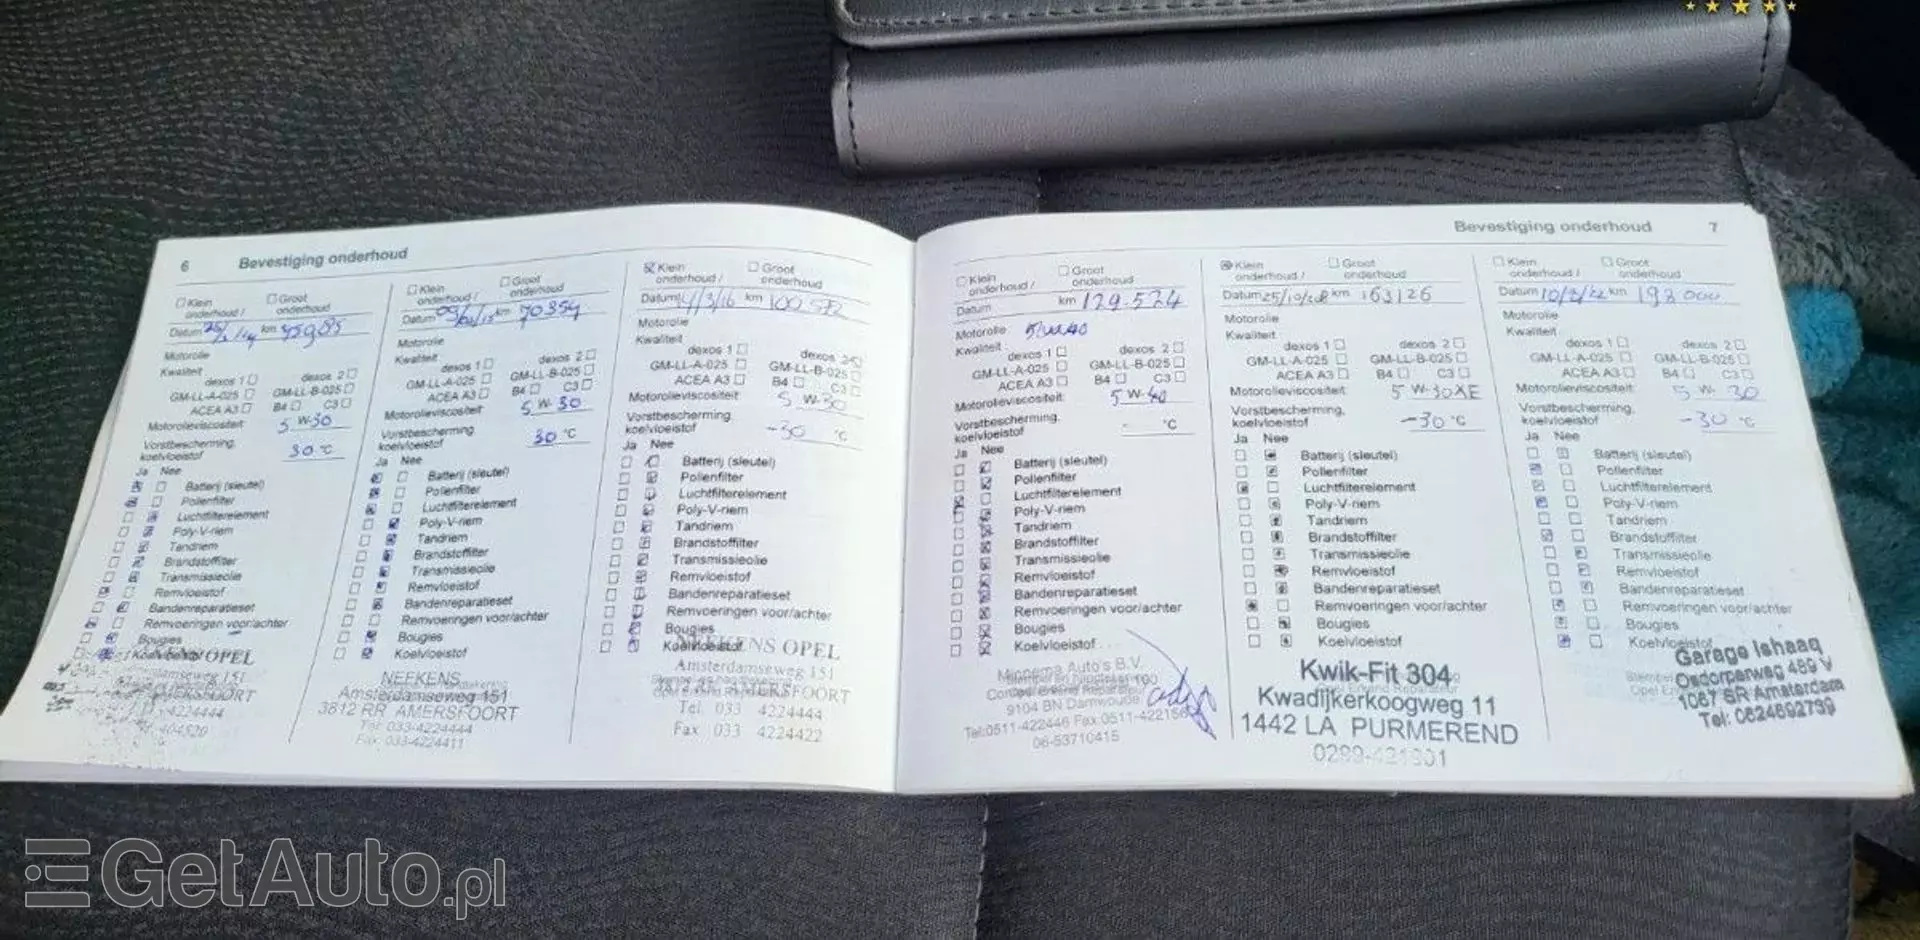 6 Bevestiging onderhoud
Klein onderhoud / Groot onderhoud
Datum 25/ /14 km
Motorolie
Kwaliteit
dexos 1 dexos 2
GM-LL-A-025 GM-LL-B-025
ACEA A3 B4 C3
Motorolieviscositeit 5 W-30
Vorstbescherming, koelvloeistof 30 °C
Ja Nee
Batterij (sleutel)
Pollenfilter
Luchtfilterelement
Poly-V-riem
Tandriem
Brandstoffilter
Transmissieolie
Remvloeistof
Bandenreparatieset
Remvoeringen voor/achter
Bougies
Koelvloeistof
OPEL
4224444
Klein onderhoud / Groot onderhoud
Datum km 70354
Motorolie
Kwaliteit
dexos 1 dexos 2
GM-LL-A-025 GM-LL-B-025
ACEA A3 B4 C3
Motorolieviscositeit 5 W-30
Vorstbescherming koelvloeistof 30 °C
Ja Nee
Batterij (sleutel)
Pollenfilter
Luchtfilterelement
Poly-V-riem
Tandriem
Brandstoffilter
Transmissieolie
Remvloeistof
Bandenreparatieset
Remvoeringen voor/achter
Bougies
Koelvloeistof
NEEKENS
Amsterdamseweg 151
3812 RR AMERSFOORT
Tel. 033-4224444
Fax. 033-4224411
Klein onderhoud / Groot onderhoud
Datum 14/3/16 km 100.572
Motorolie
Kwaliteit
dexos 1 dexos 2
GM-LL-A-025 GM-LL-B-025
ACEA A3 B4 C3
Motorolieviscositeit 5 W-30
Vorstbescherming koelvloeistof -30 °C
Ja Nee
Batterij (sleutel)
Pollenfilter
Luchtfilterelement
Poly-V-riem
Tandriem
Brandstoffilter
Transmissieolie
Remvloeistof
Bandenreparatieset
Remvoeringen voor/achter
Bougies
Koelvloeistof
NEEKENS OPEL
Amsterdamseweg 151
AMERSFOORT
Tel. 033 4224444
Fax 033 4224422
Bevestiging onderhoud 7
Klein onderhoud / Groot onderhoud
Datum km 129.574
Motorolie 5W40
Kwaliteit
dexos 1 dexos 2
GM-LL-A-025 GM-LL-B-025
ACEA A3 B4 C3
Motorolieviscositeit 5 W-40
Vorstbescherming, koelvloeistof - °C
Ja Nee
Batterij (sleutel)
Pollenfilter
Luchtfilterelement
Poly-V-riem
Tandriem
Brandstoffilter
Transmissieolie
Remvloeistof
Bandenreparatieset
Remvoeringen voor/achter
Bougies
Koelvloeistof
Minnema Auto's B.V.
9104 BN Damwoude
Tel:0511-422446 Fax:0511-422156
06-53710415
Klein onderhoud / Groot onderhoud
Datum 25/10/ km 163126
Motorolie
Kwaliteit
dexos 1 dexos 2
GM-LL-A-025 GM-LL-B-025
ACEA A3 B4 C3
Motorolieviscositeit 5 W-30XE
Vorstbescherming, koelvloeistof -30 °C
Ja Nee
Batterij (sleutel)
Pollenfilter
Luchtfilterelement
Poly-V-riem
Tandriem
Brandstoffilter
Transmissieolie
Remvloeistof
Bandenreparatieset
Remvoeringen voor/achter
Bougies
Koelvloeistof
Kwik-Fit 304
Kwadijkerkoogweg 11
1442 LA PURMEREND
Klein onderhoud / Groot onderhoud
Datum 10/2/22 km 192000
Motorolie
Kwaliteit
dexos 1 dexos 2
GM-LL-A-025 GM-LL-B-025
ACEA A3 B4 C3
Motorolieviscositeit 5 W- 30
Vorstbescherming, koelvloeistof -30 °C
Ja Nee
Batterij (sleutel)
Pollenfilter
Luchtfilterelement
Poly-V-riem
Tandriem
Brandstoffilter
Transmissieolie
Remvloeistof
Bandenreparatieset
Remvoeringen voor/achter
Bougies
Koelvloeistof
Garage Ishaaq
Osdorperweg 489 V
1067 SR Amsterdam
Tel: 0624692799
GetAuto.pl